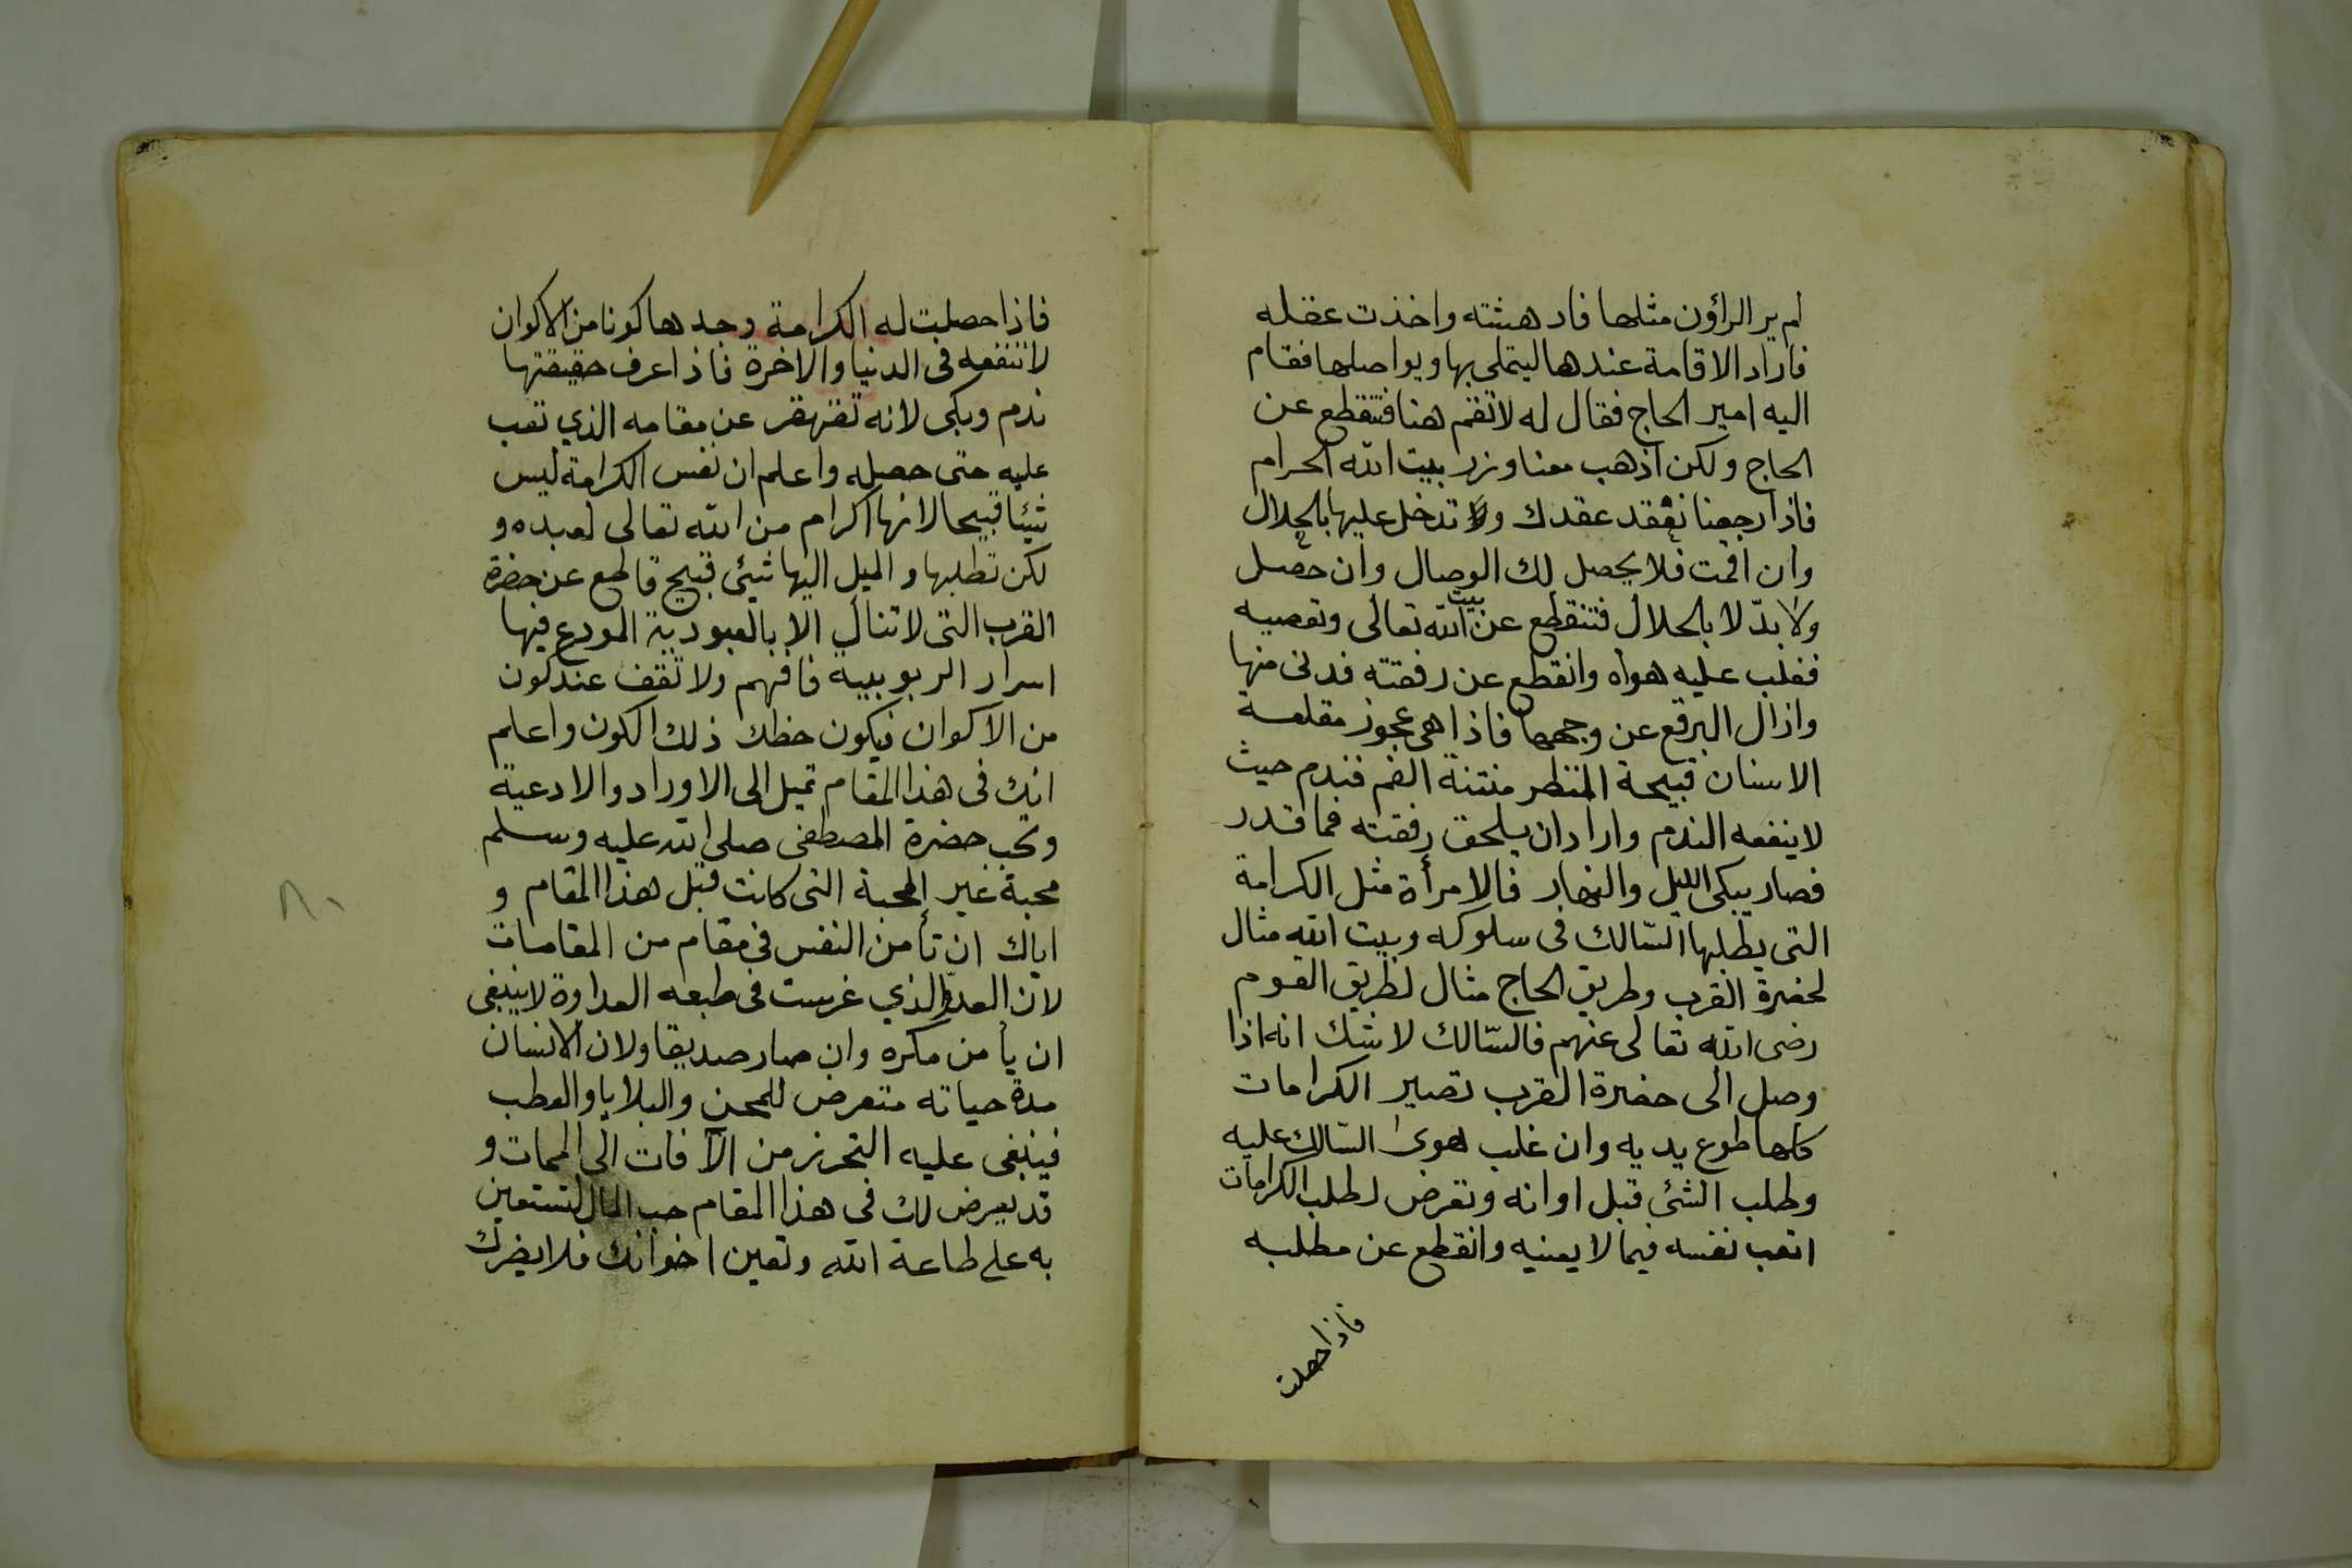 لم ير الراؤن مثلها فادهشته واخذت عقله
فاراد الاقامة عندها ليتملى بها ويواصلها فقام
اليه امير الحاج فقال له لا تقم هنا فتنقطع عن
الحاج ولكن اذهب معنا وزر بيت الله الحرام
فاذا رجعنا نعقد عقدك وتدخل عليها بالحلال
وان اقمت فلا يحصل لك الوصال وان حصل
ولا بدّ لا بالحلال فتنقطع عن بيت الله تعالى وتعصيه
فغلب عليه هواه وانقطع عن رفقته فدنى منها
وازال البرقع عن وجهها فاذا هى عجوز مقلعة
الاسنان قبيحة المنظر منتنة الفم فندم حيث
لا ينفعه الندم واراد ان يلحق رفقته فما قدر
فصار يبكى الليل والنهار فالامرأة مثل الكرامة
التى يطلبها السّالك فى سلوكه وبيت الله مثال
لحضرة القرب وطريق الحاج مثال لطريق القوم
رضى الله تعالى عنهم فالسّالك لا شك انه اذا
وصل الى حضرة القرب تصير الكرامات
كلها طوع يديه وان غلب هوى السّالك عليه
وطلب الشئ قبل اوانه وتعرض لطلب الكرامات
اتعب نفسه فيما لا يعنيه وانقطع عن مطلبه
فاذا حصلت
فاذا حصلت له الكرامة وجدها كونا من الاكوان
لا تنفعه فى الدنيا والاخرة فاذا عرف حقيقتها
ندم وبكى لانه تقهقر عن مقامه الذي تعب
عليه حتى حصله واعلم ان نفس الكرامة ليس
شيئا قبيحا لانها اكرام من الله تعالى لعبده و
لكن تطلبها والميل اليها شيئ قبيح قاطع عن حضرة
القرب التى لا تنال الا بالعبودية المودع فيها
اسرار الربوبية فافهم ولا تقف عند كون
من الاكوان فيكون حظك ذلك الكون واعلم
انك فى هذا المقام تميل الى الاوراد والادعية
وتحب حضرة المصطفى صلى الله عليه وسلم
محبة غير المحبة التى كانت قبل هذا المقام و
اياك ان تأمن النفس فى مقام من المقامات
لان العدوّ الذي غرست فى طبعه العداوة لا ينبغى
ان يأمن مكره وان صار صديقا ولان الانسان
مدة حياته متعرض للمحن والبلايا والعطب
فينبغى عليه التحرز من الآفات الى الممات و
قد يعرض لك فى هذا المقام حب المال لتستعين
به على طاعة الله وتعين اخوانك فلا يضرك